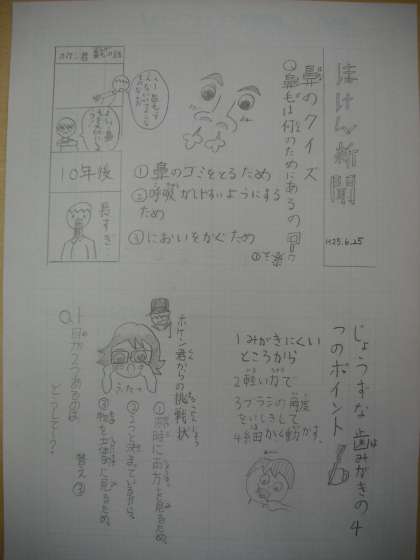 ほけん新聞
H25.6.25
鼻のクイズ
Q鼻毛は何のためにあるの
①鼻のゴミをとるため
②呼吸がしやすいようにする
ため
③においをかぐため
10年後
長すぎ…
じょうずな歯みがきの4
つのポイント
1みがきにくい
ところから
2軽い力で
3ブラシの角度
をいしきして
4細かく動かす。
ホケン君からの挑戦状
Q1目が2つあるのは
どうして?
①同時に両方を見るため、
②2つと決まっているから、
③物を立体的に見るため、
答え③